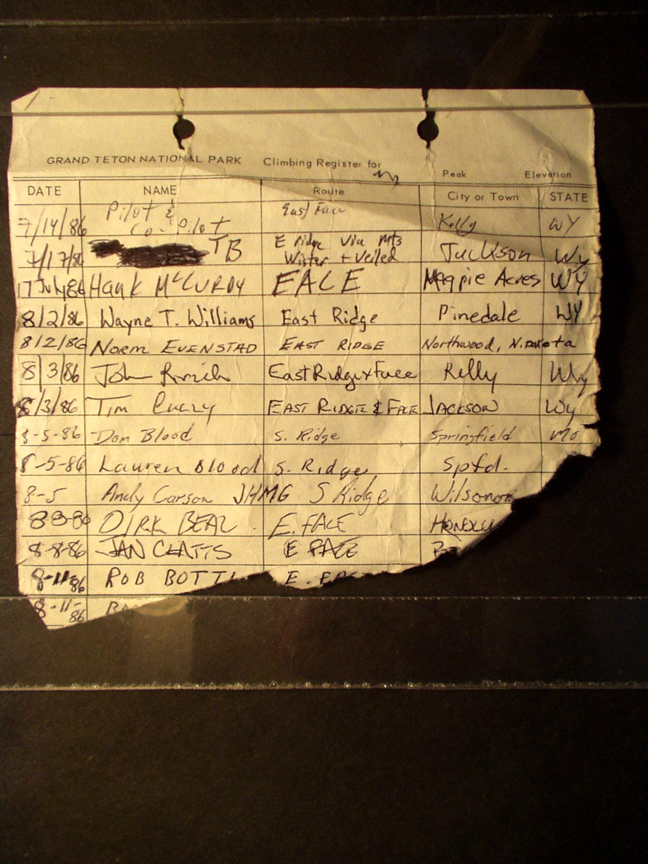 GRAND TETON NATIONAL PARK Climbing Register for Peak Elevation
DATE NAME Route City or Town STATE
7/14/86 Pilot & Co-Pilot East Face Kelly WY
7/17/86 TB E ridge via Mts Wister + Veiled Jackson Wy
17 July 86 Hank McCurdy E FACE Magpie Acres WY
8/2/86 Wayne T. Williams East Ridge Pinedale WY
8/2/86 NORM EVENSTAD EAST RIDGE Northwood, N.Dakota
8/3/86 John East Ridge + Face Kelly Wy
8/3/86 Tim EAST RIDGE & FACE JACKSON Wy
8-5-86 Don Blood S. Ridge Springfield Mo
8-5-86 Lauren Blood S. Ridge Spfd.
8-5 Andy Carson JHMG S Ridge Wilson
8-8-86 DIRK BEAL E. FACE
8-8-86 JAN E FACE
8-11-86 ROB E.
8-11-86